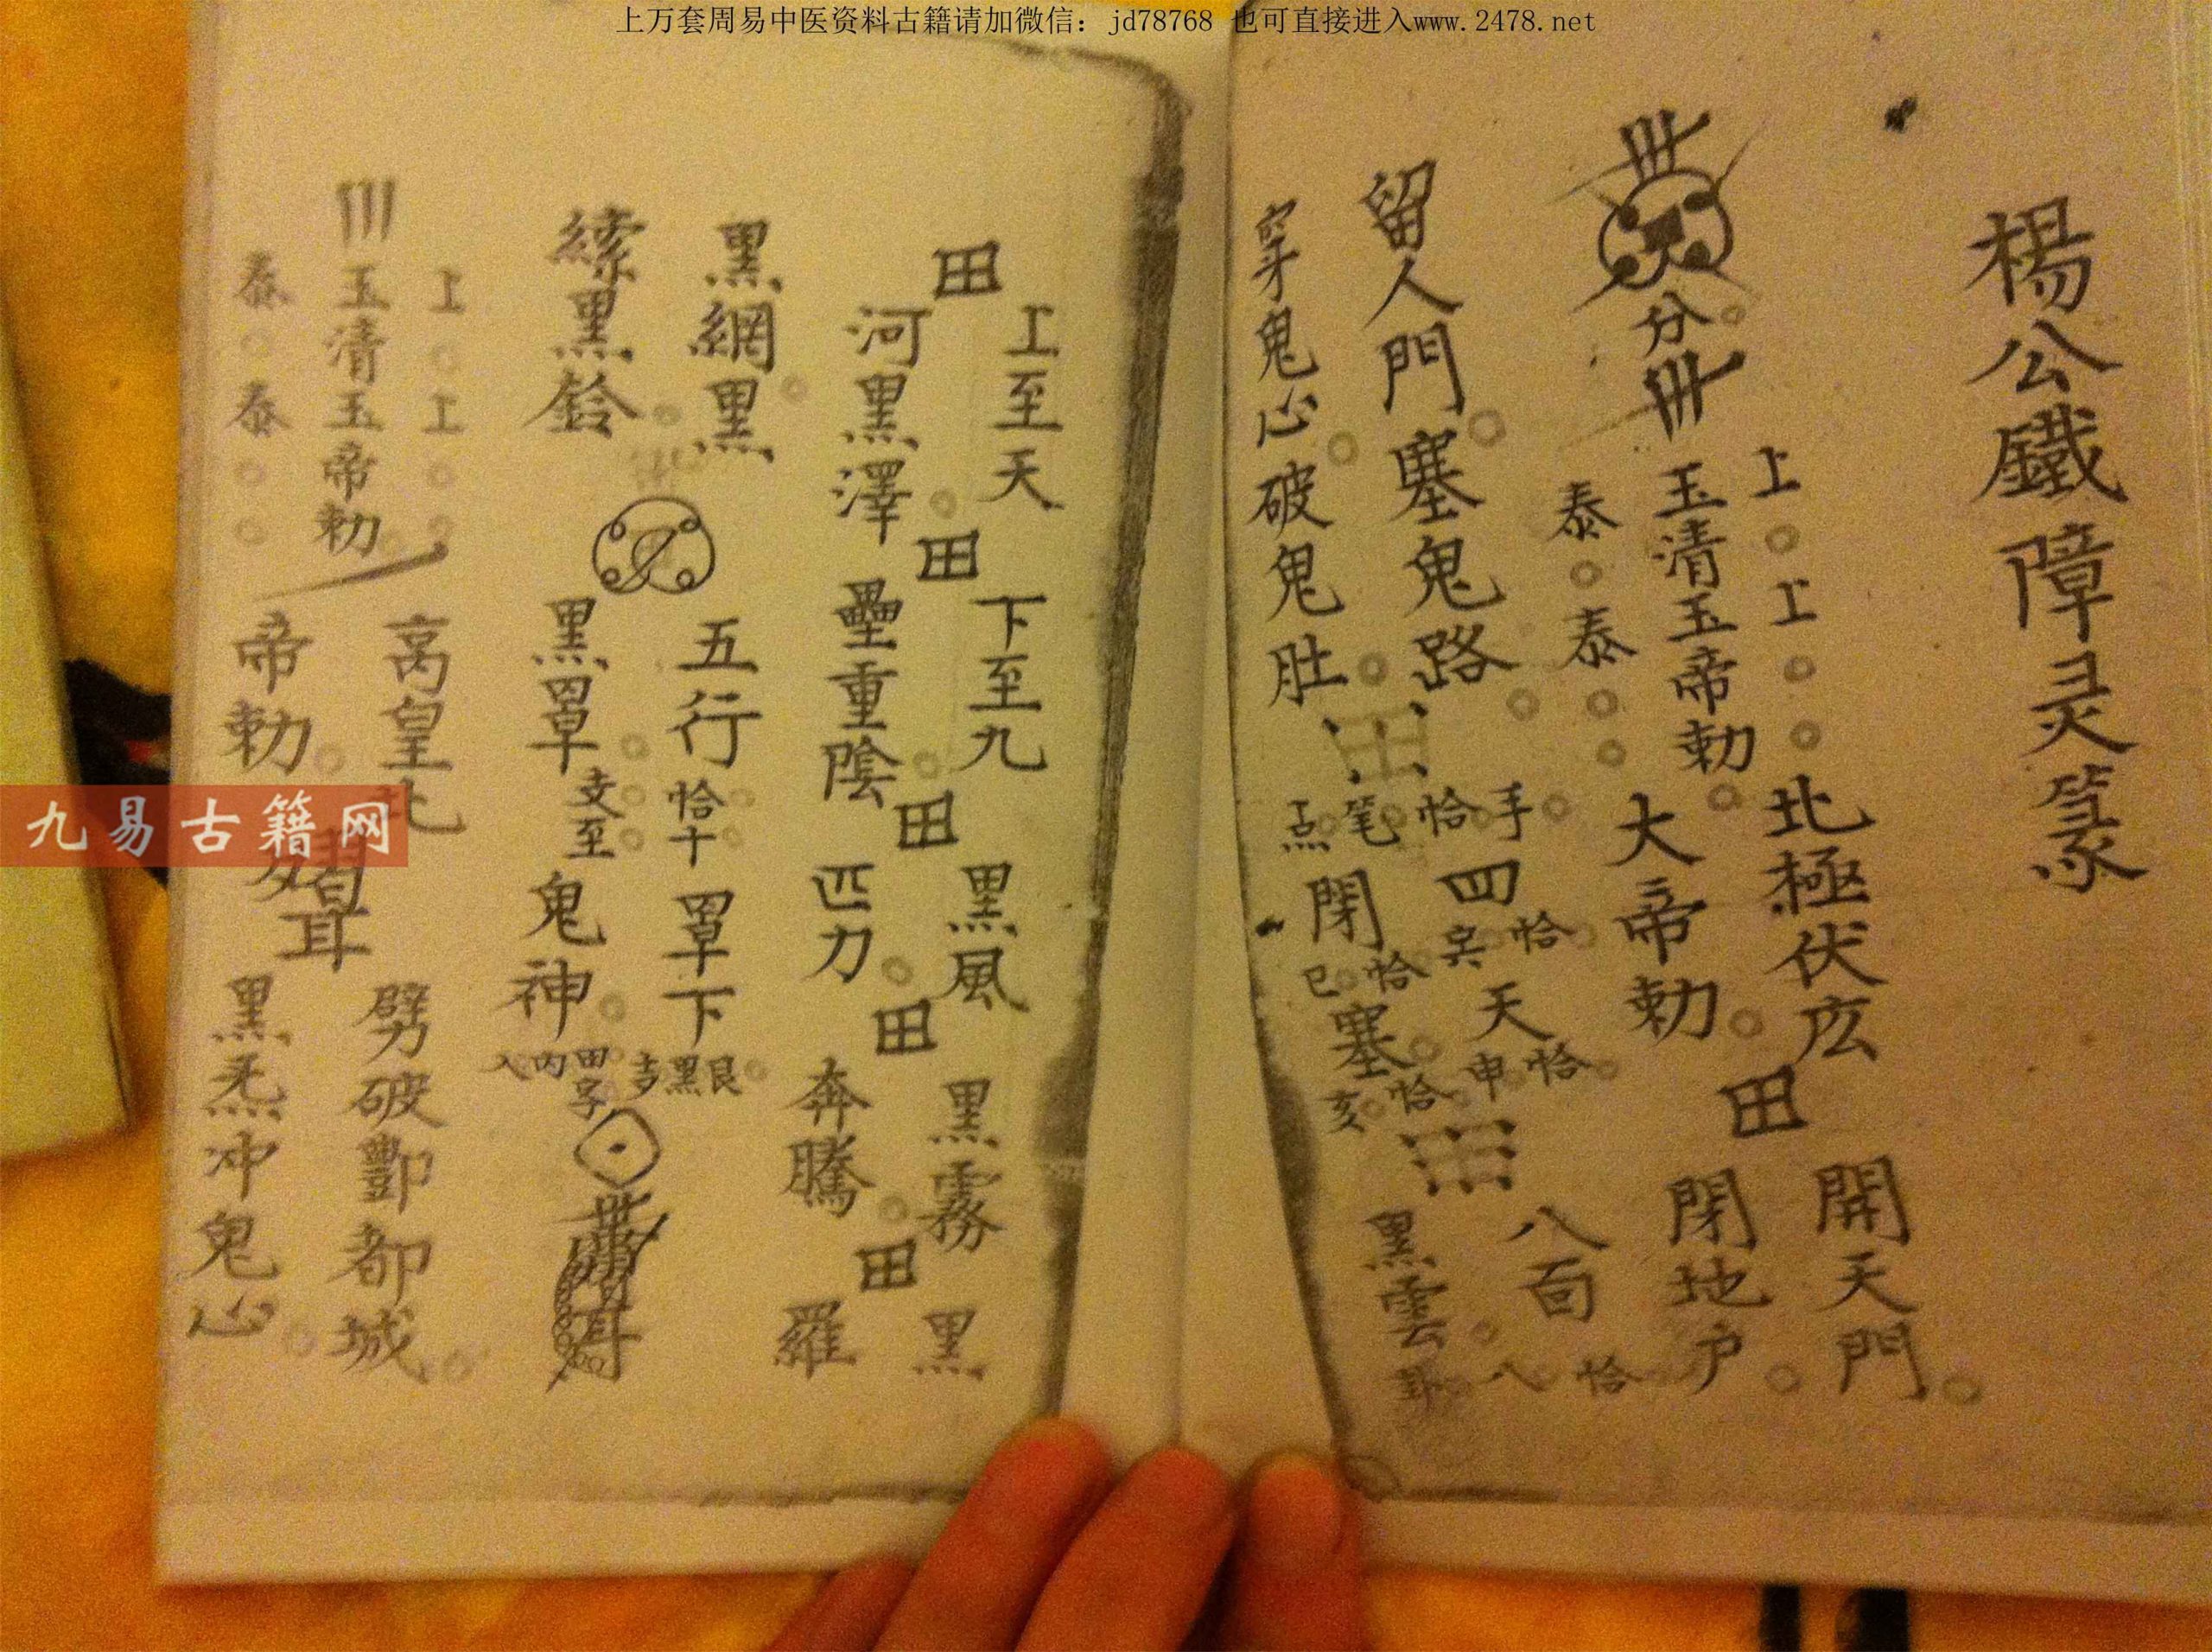 上万套周易中医资料古籍请加微信：jd78768 也可直接进入www.2478.net
楊公鐵障灵篆
分
上。上。。
玉清玉帝勅。
泰。泰。。
北極伏庅
大帝勅。
田
開天門。
閉地户。
留人門。塞鬼路。
穿鬼心。破鬼肚。
手恰笔点
四恰
天恰申
閉恰巳
塞。恰亥
八百
黑雲。恰八卦
田
上至天
河黑澤。
田
下至九
壘重陰。
田
黑風
匹力。
田
黑霧
奔騰。
田
黑
羅
黑網。黑
縤黑鈴。
五行恰十罩下
黑罩。至鬼神。
艮黑多田字內入
上。上。。
玉清玉帝勅
泰。泰。。
高皇北
帝勅。
劈破酆都城。
黑炁冲鬼心。
九易古籍网